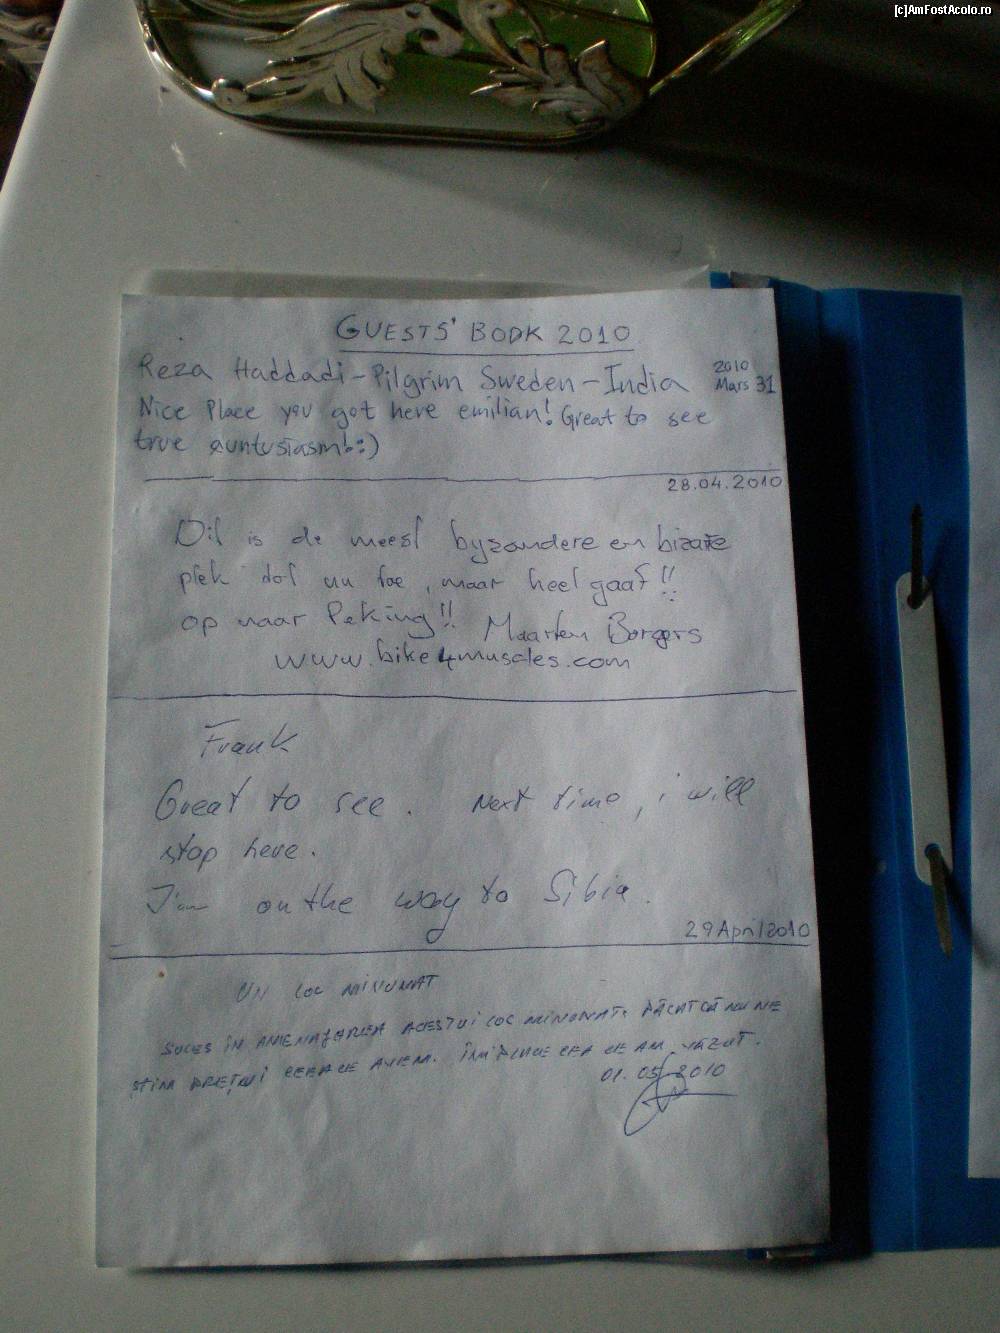 [c]AmFostAcolo.ro
GUESTS' BOOK 2010
Reza Haddadi - Pilgrim Sweden - India
2010
Mars 31
Nice Place you got here emilian! Great to see
true auntusiasm!:)
28.04.2010
Dit is de meest byzondere en bizarre
plek tot nu toe, maar heel gaaf!!
op naar Peking!! Maarten Borgers
www.bike4muscles.com
Frank
Great to see. Next time, i will
stop here.
I'm on the way to Sibia.
29 April 2010
UN LOC MINUNAT
SUCES ÎN AMENAJAREA ACESTUI LOC MINUNAT. PĂCAT CĂ NU NE
ȘTIM PREȚUI CEEA CE AVEM. ÎMI PLACE CEA CE AM VĂZUT.
01.05.2010